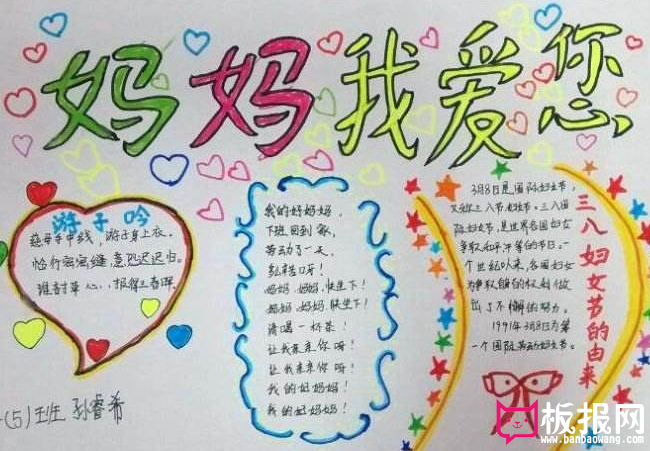 妈妈我爱您
游子吟
慈母手中线，游子身上衣。
临行密密缝，意恐迟迟归。
谁言寸草心，报得三春晖。
(5)班 孙睿希
我的好妈妈，
下班回到家，
劳动了一天，
多么辛苦呀！
妈妈，妈妈，快坐下！
妈妈，妈妈，快坐下！
请喝一杯茶！
让我来亲你呀！
让我来亲你呀！
我的好妈妈！
我的好妈妈！
3月8日是国际妇女节，
又称三八节、妇女节。三八国
际妇女节，是世界各国妇女
争取和平平等的节日。一
个世纪以来，各国妇女
为争取解的权利做
出了不懈的努力。
1991年3月8日为第
一个国际劳动妇女节。
三八妇女节的由来
板报网
www.banbaowang.com